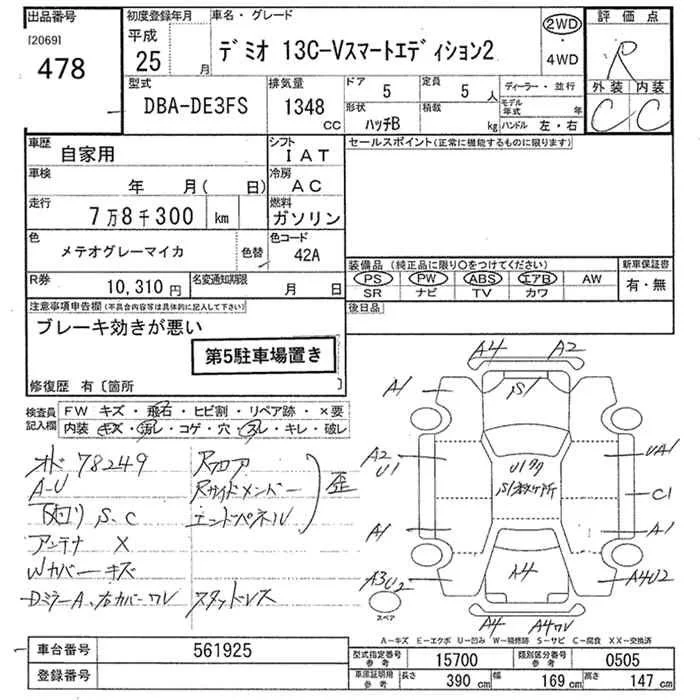 出品番号
[2069]
478
初度登録年月
平成
25
月
車名・グレード
デミオ 13C-Vスマートエディション2
2WD
・
4WD
評価点
R
外装 内装
C C
型式
DBA-DE3FS
排気量
1348
CC
ドア
5
形状
ハッチB
定員
5 人
積載
kg
ディーラー・並行
モデル年式 年
ハンドル 左・右
車歴
自家用
シフト
IAT
車検
年 月( 日)
冷房
AC
走行
7万8千300 km
燃料
ガソリン
色
メテオグレーマイカ
色替
色コード
42A
R券
10,310 円
名変通知期限
月 日
セールスポイント(正常に機能するものに限ります)
装備品(純正品に限り○をつけてください)
PS PW ABS エアB AW
SR ナビ TV カワ
新車保証書
有・無
後日品
注意事項申告欄(不具合内容等は具体的に記入して下さい)
ブレーキ効きが悪い
第5駐車場置き
修復歴 有〔箇所
検査員
記入欄
FW キズ・飛石・ヒビ割・リペア跡・×要
内装・キズ・汚レ・コゲ・穴・スレ・キレ・破レ
オド 78249
A-U
下廻り S、C
アンテナ X
Wカバーキズ
DミラーA、右カバーワレ
Rフロア
Rサイドメンバー
エンドパネル
歪
スタッドレス
A4 A2
A1 S1
A2
U1
U1
UA1
C1
A1 A1
A3U2 A4 A4U2
スペア
A4 A4ワレ
A-キズ E-エクボ U-凹み W-補修跡 S-サビ C-腐食 XX-交換済
車台番号
561925
登録番号
型式指定番号
参考
15700
類別区分番号
参考
0505
車庫証明用
参考
長さ 390 cm 幅 169 cm 高さ 147 cm